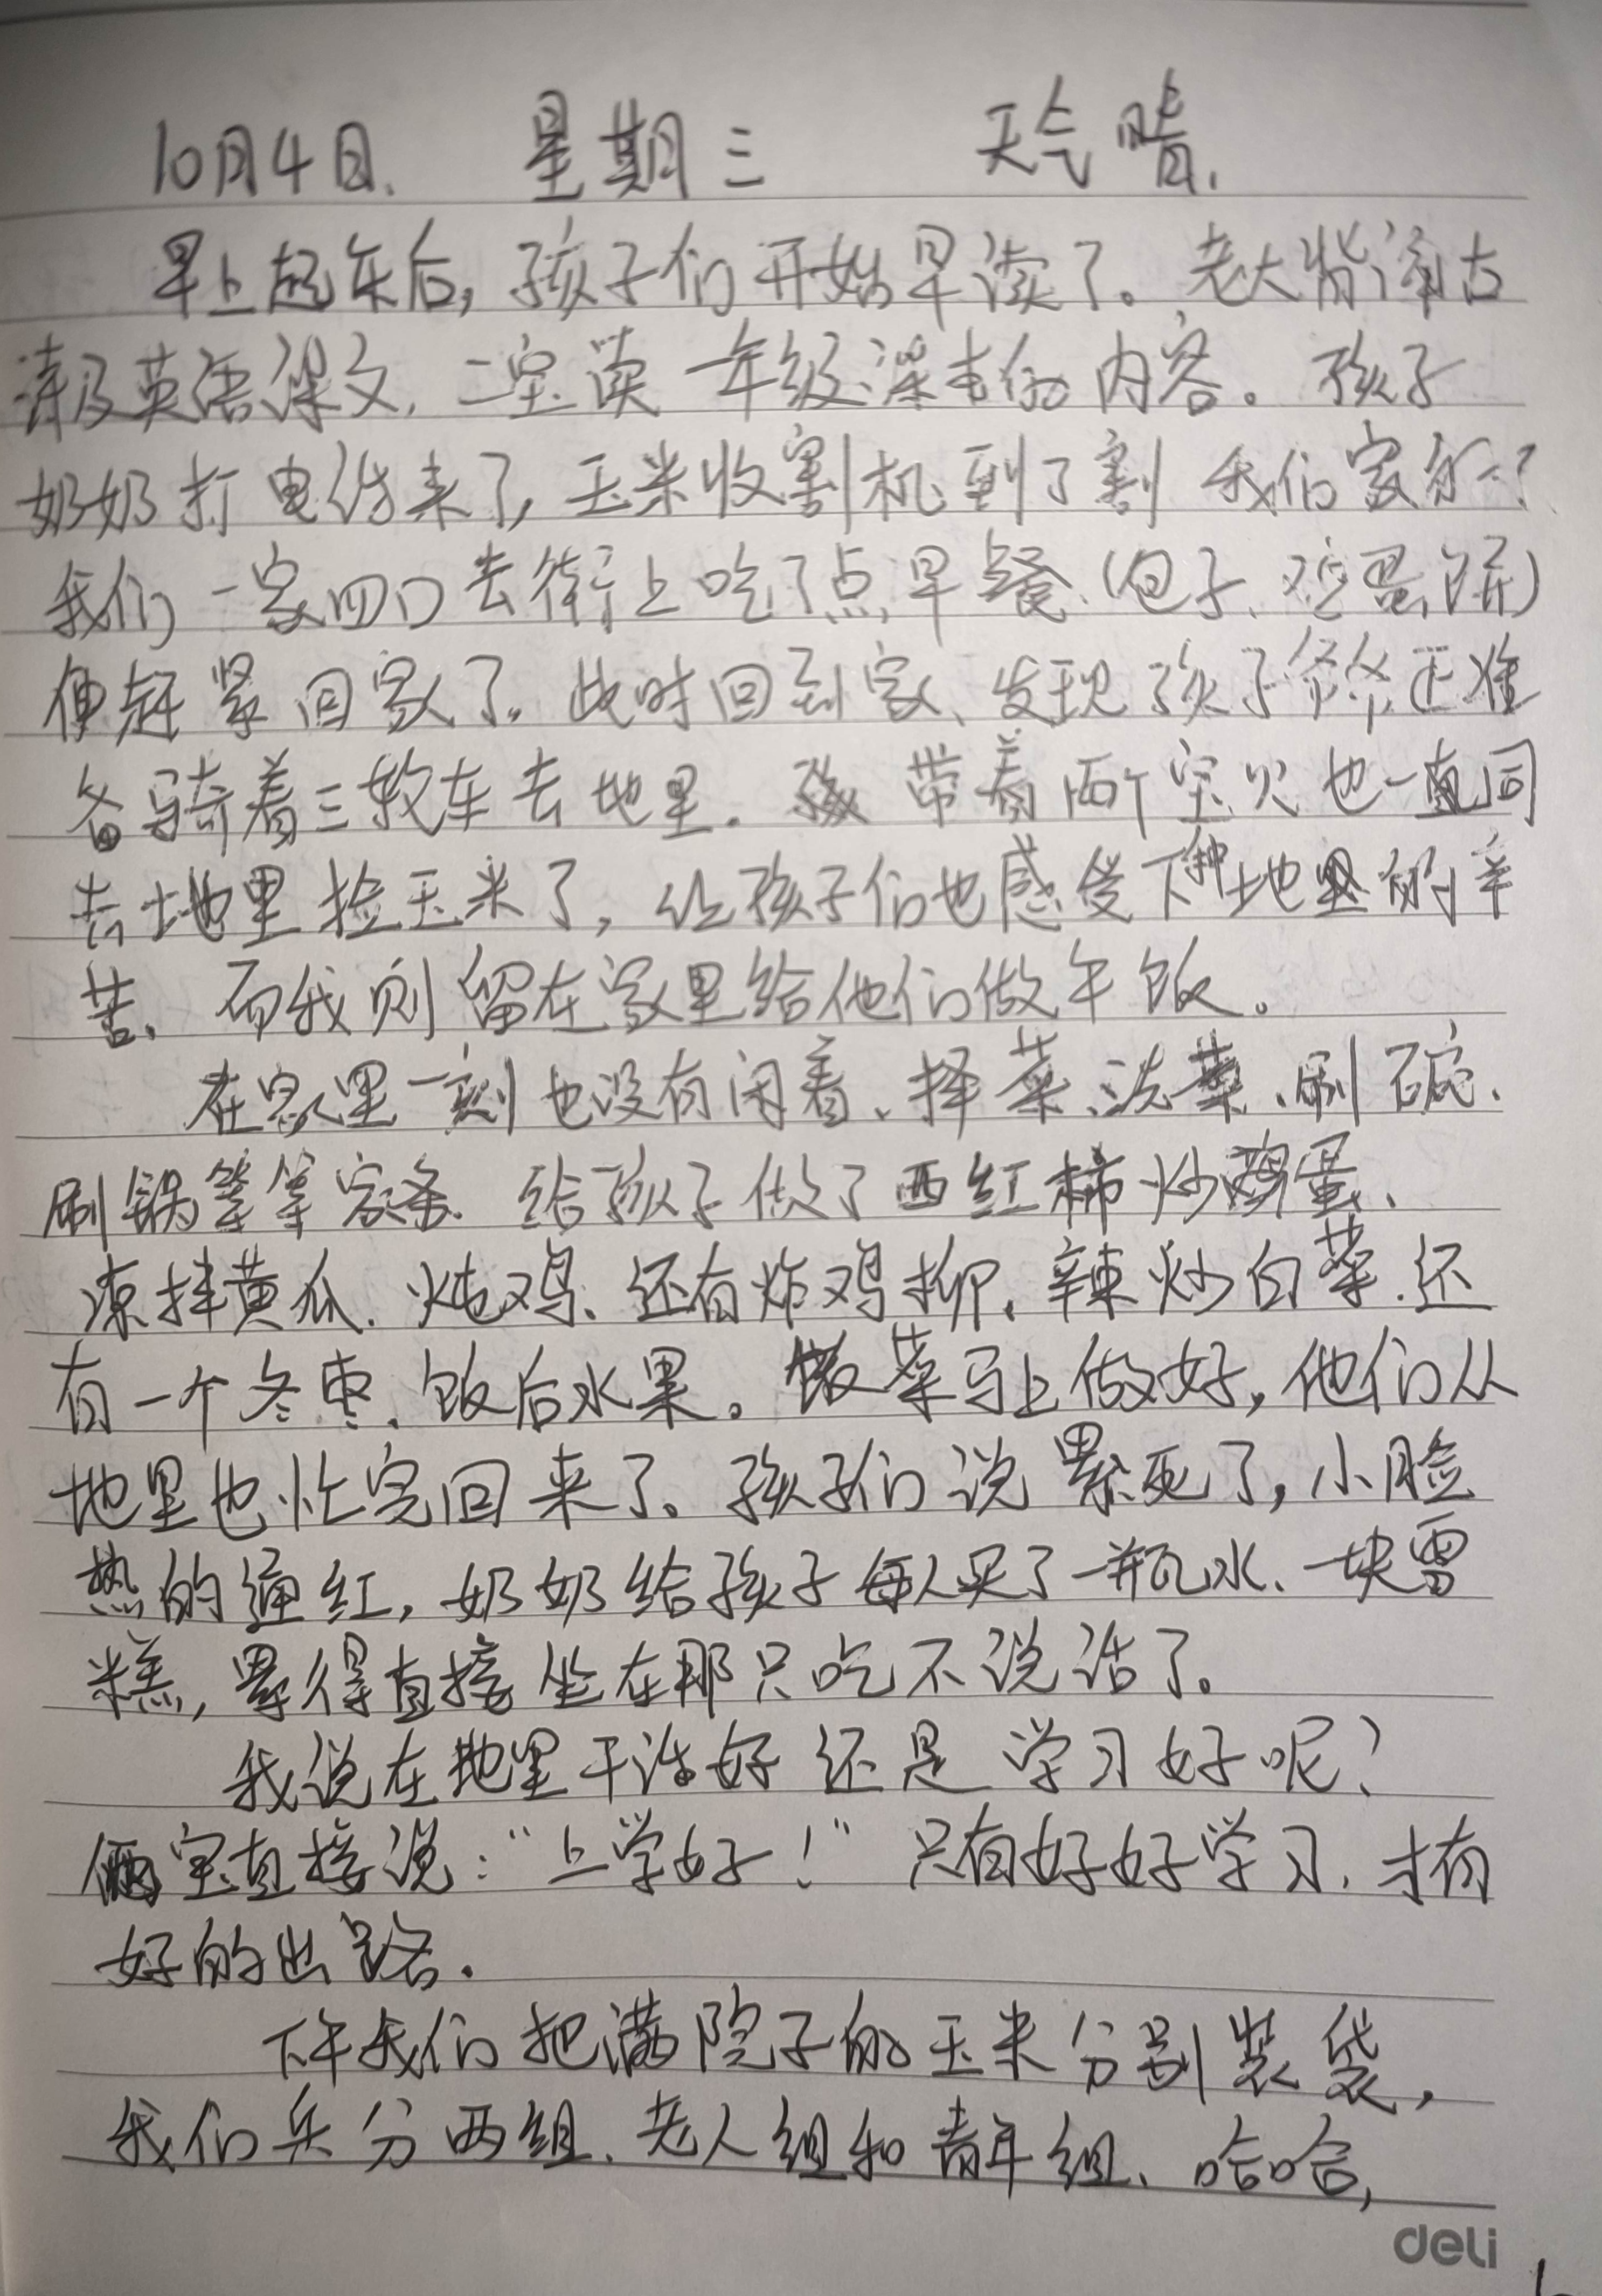 10月4日. 星期三 天气晴.
早上起床后,孩子们开始早读了。老大背诵古
诗及英语课文,二宝读一年级课本的内容。孩子
奶奶打电话来了,玉米收割机到了割我们家的了
我们一家四口去街上吃了点早餐、(包子、鸡蛋饼)
便赶紧回家了。此时回到家、发现孩子爷爷正准
备骑着三轮车去地里. 带着两个宝贝也一直同
去地里捡玉米了,让孩子们也感受下种地的辛
苦、而我则留在家里给他们做午饭。
在家里一刻也没有闲着、择菜、洗菜、刷碗、
刷锅等等家务. 给孩子做了西红柿炒鸡蛋、
凉拌黄瓜. 炖鸡、还有炸鸡柳、辣炒白菜. 还
有一个冬枣、饭后水果。饭菜马上做好,他们从
地里也忙完回来了。孩子们说累死了,小脸
热的通红,奶奶给孩子每人买了一瓶水、一块雪
糕,累得直接坐在那只吃不说话了。
我说在地里干活好还是学习好呢?
俩宝直接说:“上学好!”只有好好学习,才有
好的出路.
下午我们把满院子的玉米分别装袋,
我们兵分两组、老人组和青年组、哈哈,
deli